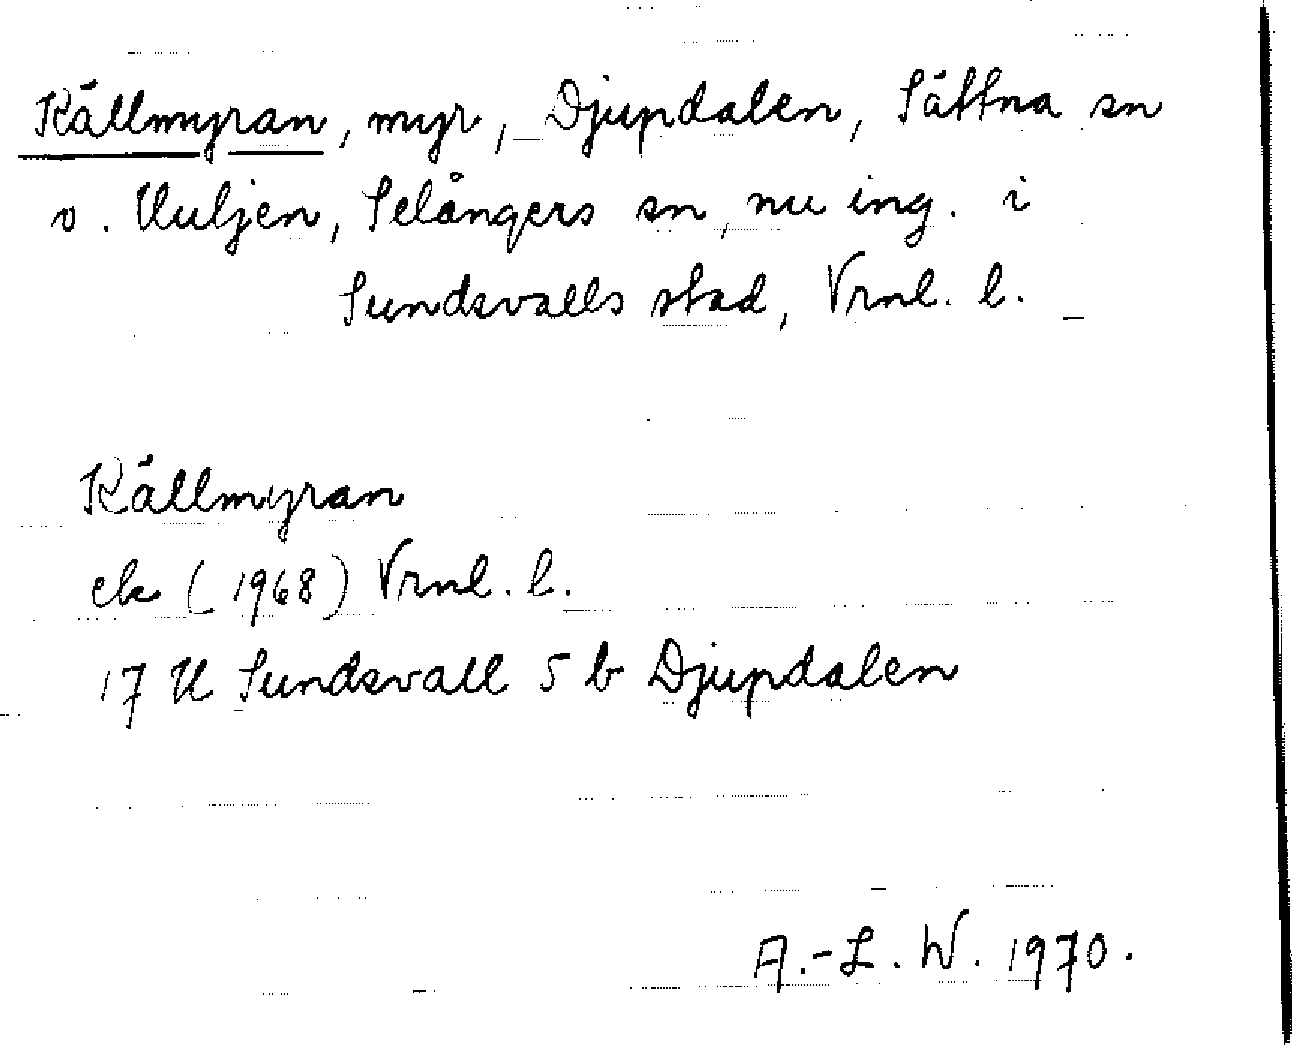 Källmyran, myr, Djupdalen, Sättna sn
o. Kuljen, Selångers sn, nu ing. i
Sundsvalls stad, Vrnl. l.
Källmyran
ek (1968) Vrnl. l.
17 H Sundsvall 5 b Djupdalen
A.-L. W. 1970.